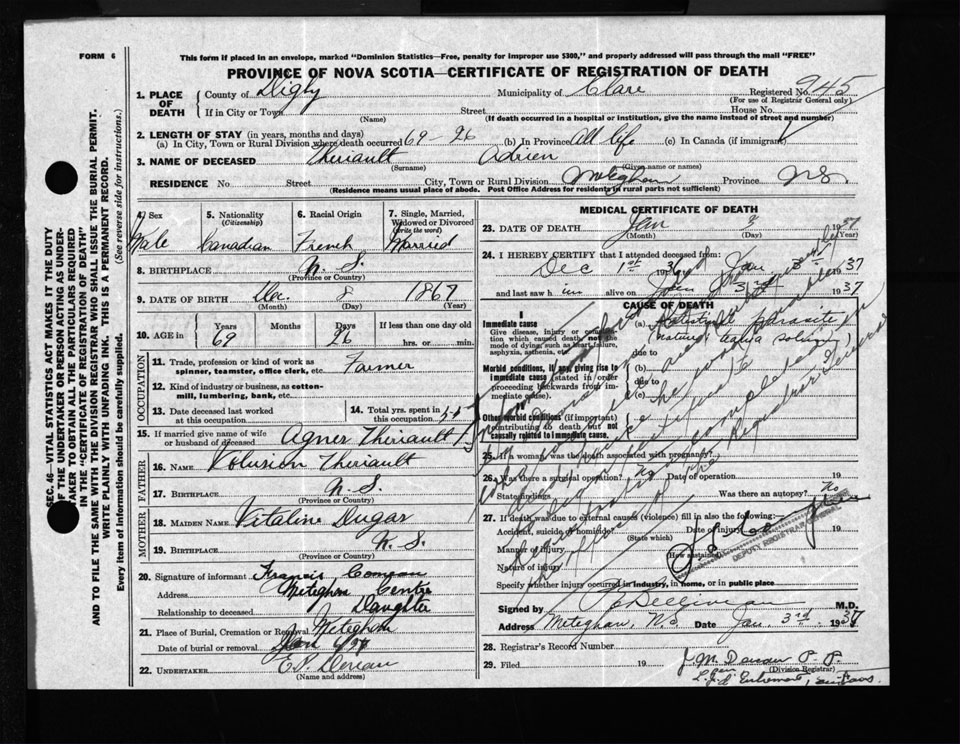 FORM 6
This form if placed in an envelope, marked "Dominion Statistics—Free, penalty for improper use $300," and properly addressed will pass through the mail "FREE"
PROVINCE OF NOVA SCOTIA—CERTIFICATE OF REGISTRATION OF DEATH
1. PLACE OF DEATH
County of Digby Municipality of Clare Registered No. 945
(For use of Registrar General only)
If in City or Town Street House No.
(Name) (If death occurred in a hospital or institution, give the name instead of street and number)
2. LENGTH OF STAY (in years, months and days)
(a) In City, Town or Rural Division where death occurred 69-26 (b) In Province All life (c) In Canada (if immigrant)
3. NAME OF DECEASED Theriault Adrien
(Surname) (Given name or names)
RESIDENCE No Street City, Town or Rural Division Meteghan Province N.S.
(Residence means usual place of abode. Post Office Address for residents in rural parts not sufficient)
4. Sex
Male
5. Nationality
(Citizenship)
Canadian
6. Racial Origin
French
7. Single, Married, Widowed or Divorced
(Write the word)
Married
8. BIRTHPLACE N. S.
(Province or Country)
9. DATE OF BIRTH Dec. 8 1867
(Month) (Day) (Year)
10. AGE in Years Months Days If less than one day old
69 26 hrs. or min.
OCCUPATION
11. Trade, profession or kind of work as spinner, teamster, office clerk, etc. Farmer
12. Kind of industry or business, as cotton-mill, lumbering, bank, etc.
13. Date deceased last worked at this occupation
14. Total yrs. spent in this occupation
15. If married give name of wife or husband of deceased Agnes Theriault
FATHER
16. NAME Volusion Theriault
17. BIRTHPLACE N. S.
(Province or Country)
MOTHER
18. MAIDEN NAME Vitaline Dugas
19. BIRTHPLACE N. S.
(Province or Country)
20. Signature of informant Francis Comeau
Address Meteghan Centre
Relationship to deceased Daughter
21. Place of Burial, Cremation or Removal Meteghan
Date of burial or removal
22. UNDERTAKER
(Name and address)
MEDICAL CERTIFICATE OF DEATH
23. DATE OF DEATH Jan 1937
(Month) (Day) (Year)
24. I HEREBY CERTIFY that I attended deceased from
Dec 1st 1936 Jan 3rd 1937
and last saw h im alive on Jan 3rd 1937
CAUSE OF DEATH
I
Immediate cause
Give disease, injury or complication which caused death, not the mode of dying such as heart failure, asphyxia, asthenia, etc.
(a)
due to
Morbid conditions, if any, giving rise to immediate cause (stated in order proceeding backwards from immediate cause).
(b)
due to
(c)
II
Other morbid conditions (if important) contributing to death but not causally related to Immediate cause.
25. If a woman, was the death associated with pregnancy?
26. Was there a surgical operation? No Date of operation 19
State findings Was there an autopsy? No
27. If death was due to external causes (violence) fill in also the following:—
Accident, suicide or homicide Date of injury 19
(State which)
Manner of injury (How sustained)
Nature of injury
Specify whether injury occurred in industry, in home, or in public place
DEPUTY REGISTRAR GENERAL
Signed by M.D.
Address Meteghan, N.S. Date Jan. 3rd 1937
28. Registrar's Record Number
29. Filed 19
(Division Registrar)
SEC. 46—VITAL STATISTICS ACT MAKES IT THE DUTY
OF THE UNDERTAKER OR PERSON ACTING AS UNDERTAKER
TO OBTAIN ALL THE PARTICULARS REQUIRED
IN THE "CERTIFICATE OF REGISTRATION OF DEATH"
AND TO FILE THE SAME WITH THE DIVISION REGISTRAR WHO SHALL ISSUE THE BURIAL PERMIT.
WRITE PLAINLY WITH UNFADING INK. THIS IS A PERMANENT RECORD.
Every item of information should be carefully supplied. (See reverse side for instructions.)